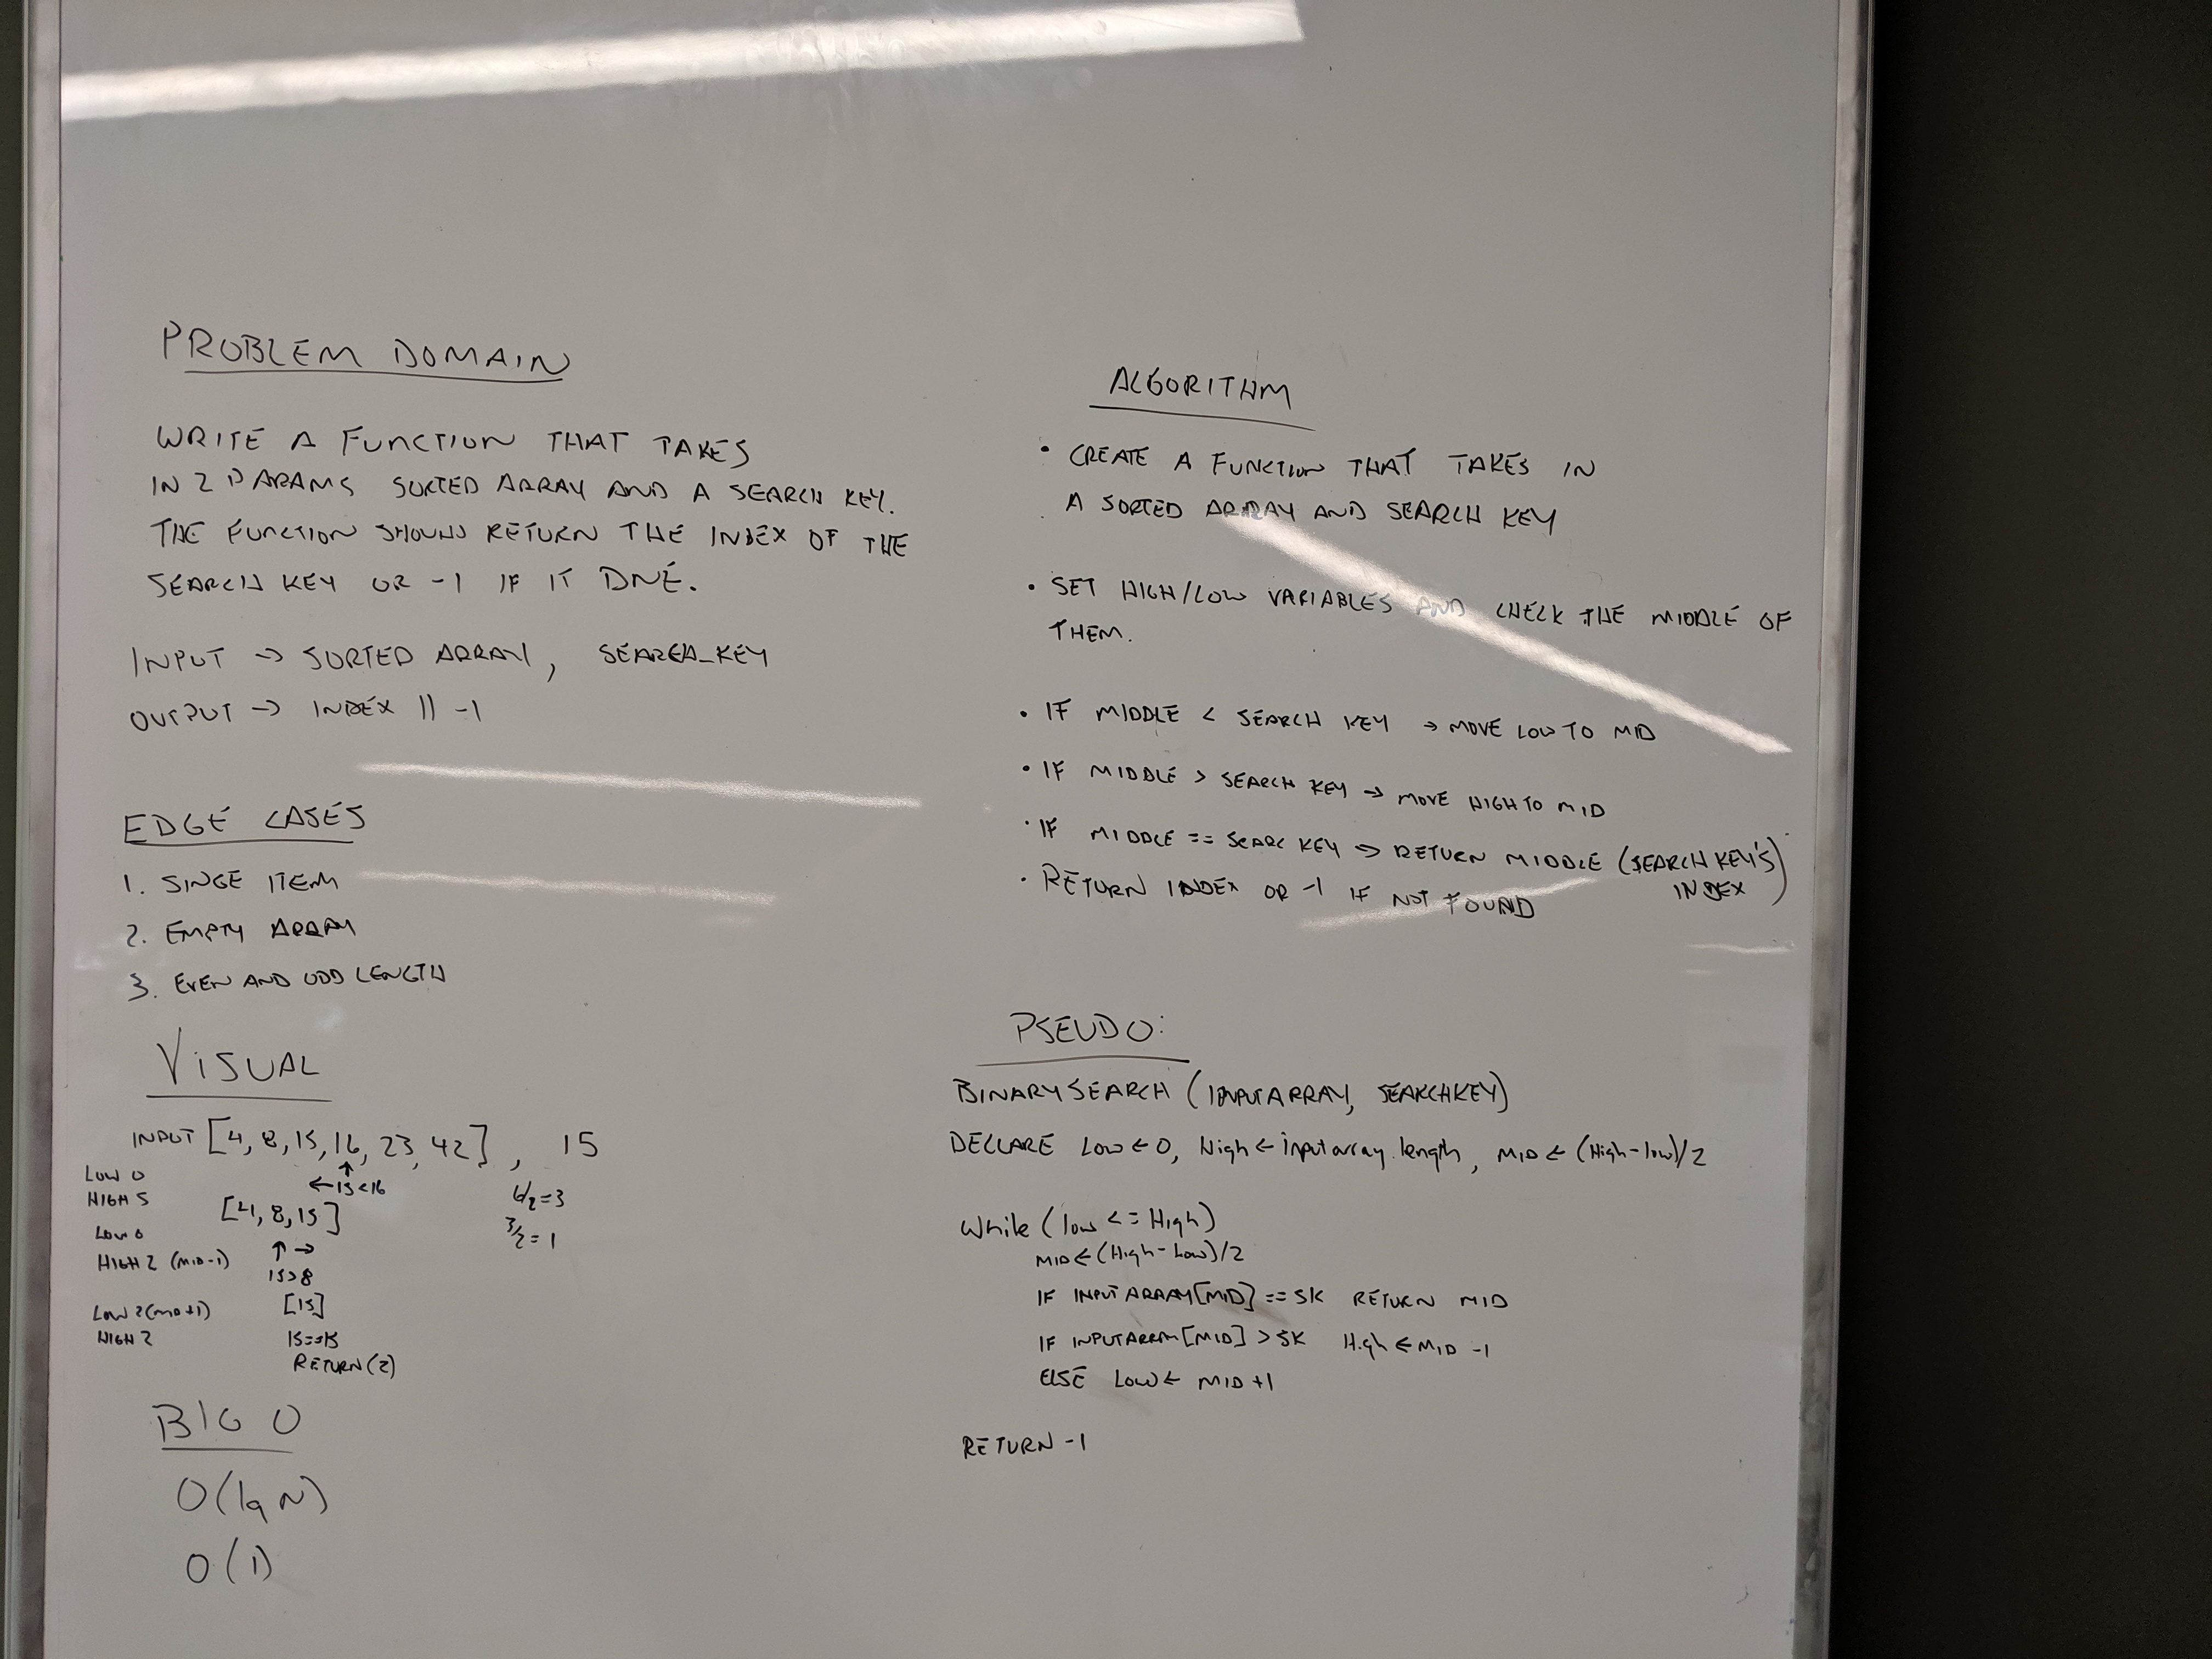 PROBLEM DOMAIN
WRITE A FUNCTION THAT TAKES
IN 2 PARAMS SORTED ARRAY AND A SEARCH KEY.
THE FUNCTION SHOULD RETURN THE INDEX OF THE
SEARCH KEY OR -1 IF IT DNE.
INPUT → SORTED ARRAY, SEARCH_KEY
OUTPUT → INDEX || -1
EDGE CASES
1. SINGE ITEM
2. EMPTY ARRAY
3. EVEN AND ODD LENGTH
VISUAL
INPUT [4, 8, 15, 16, 23, 42] , 15
LOW 0
HIGH 5
↑
← 15<16
6/2=3
[4, 8, 15]
3/2=1
LOW 0
HIGH 2 (MID-1)
↑ →
15>8
LOW 2 (MID+1)
[15]
HIGH 2
15==15
RETURN(2)
BIG O
O(lg N)
O(1)
ALGORITHM
• CREATE A FUNCTION THAT TAKES IN
A SORTED ARRAY AND SEARCH KEY
• SET HIGH/LOW VARIABLES AND CHECK THE MIDDLE OF
THEM.
• IF MIDDLE < SEARCH KEY → MOVE LOW TO MID
• IF MIDDLE > SEARCH KEY → MOVE HIGH TO MID
• IF MIDDLE == SEARC KEY → RETURN MIDDLE (SEARCH KEY'S
INDEX)
• RETURN INDEX OR -1 IF NOT FOUND
PSEUDO:
BINARYSEARCH (INPUTARRAY, SEARCHKEY)
DECLARE LOW ← 0, High ← inputarray.length, MID ← (High-low)/2
While (low <= High)
MID ← (High-Low)/2
IF INPUTARRAY[MID] == SK RETURN MID
IF INPUTARRAY[MID] > SK High ← MID -1
ELSE LOW ← MID +1
RETURN -1